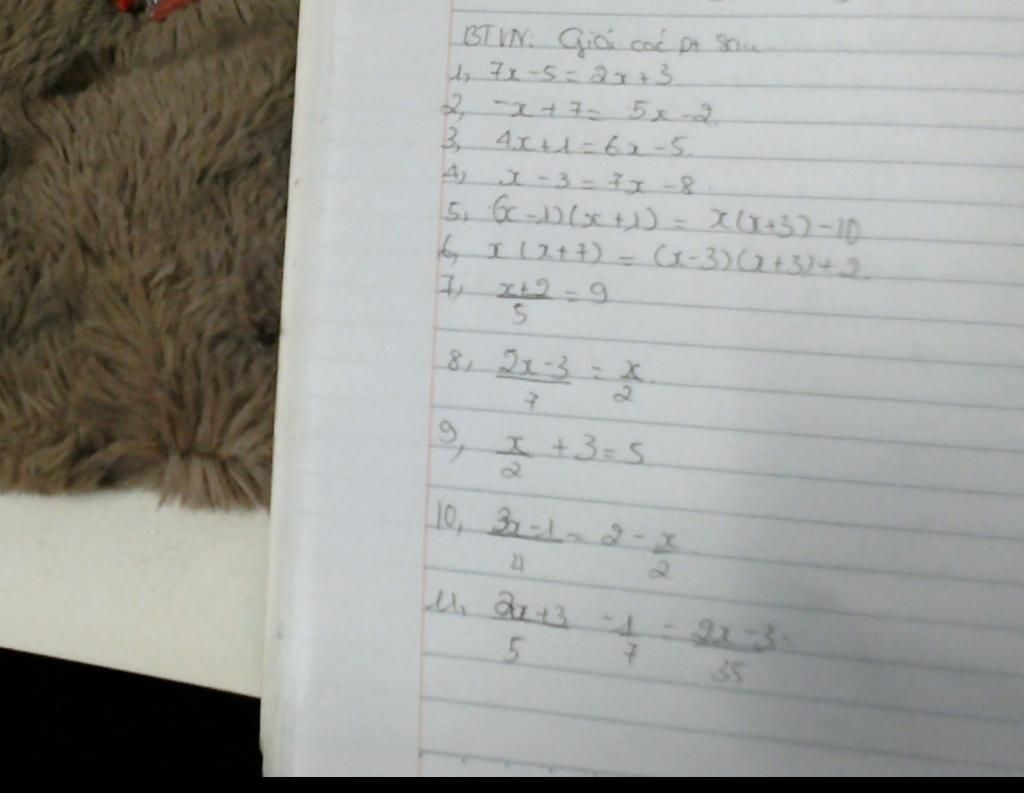 BTVN: Giải các pt sau
1, 7x - 5 = 2x + 3
2, -x + 7 = 5x - 2
3, 4x + 1 = 6x - 5
4, x - 3 = 7x - 8
5, (x - 1)(x + 1) = x(x + 3) - 10
6, x(x + 7) = (x - 3)(x + 3) + 2
7, \frac{x+2}{5} = 9
8, \frac{2x-3}{7} = \frac{x}{2}
9, \frac{x}{2} + 3 = 5
10, \frac{3x-1}{4} = 2 - \frac{x}{2}
11, \frac{2x+3}{5} - \frac{1}{7} = \frac{2x-3}{35}